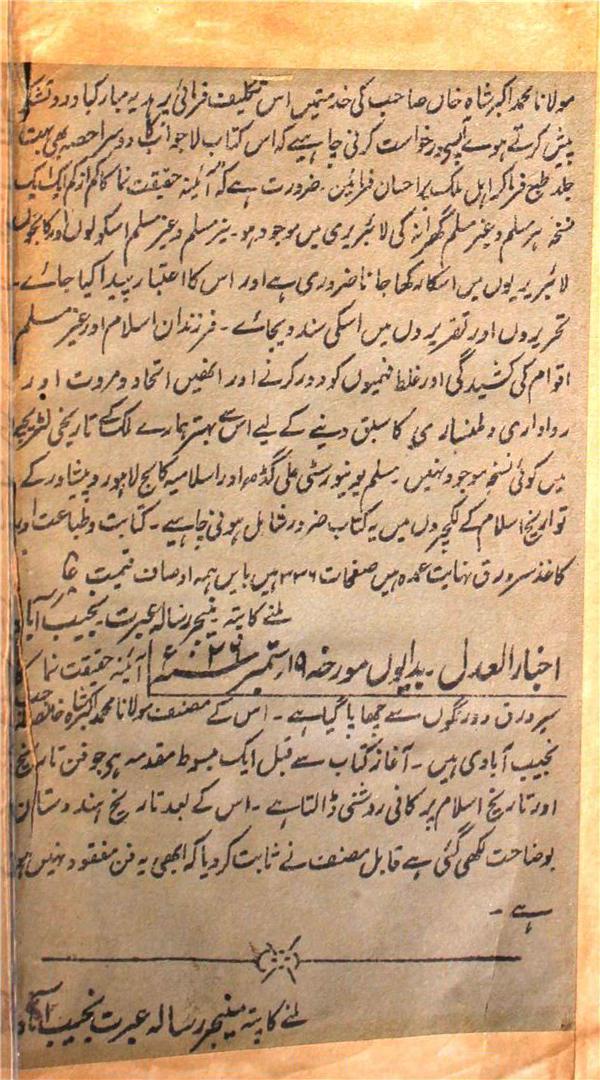 مولانا محمد اکبر شاہ خاں صاحب کی خدمتمیں اس تکلیف فرمائی پر ہدیہ مبارکباد و تشکر
پیش کرتے ہوے آپسے درخواست کرنی چاہیے کہ اس کتاب لاجواب کا دوسرا حصہ بھی بہت
جلد طبع فرما کر اہل ملک پر احسان فرمائیں۔ ضرورت ہے کہ آئینہ حقیقت نما کا کم از کم ایک ایک
نسخہ ہر مسلم و غیر مسلم گھرانہ کی لائبریری میں موجود ہو۔ نیز مسلم و غیر مسلم اسکولوں اور کالجوں
لائبریریوں میں اسکا رکھا جانا ضروری ہے اور اس کا اعتبار پیدا کیا جائے۔
تحریروں اور تقریروں میں اسکی سند دیجائے۔ فرزندان اسلام اور غیر مسلم
اقوام کی کشیدگی اور غلط فہمیوں کو دور کرنے اور انھیں اتحاد و مروت اور
رواداری و ملنساری کا سبق دینے کے لیے اس سے بہتر ہمارے ملک کے تاریخی لٹریچر
میں کوئی نسخہ موجود نہیں۔ مسلم یونیورسٹی علی گڈھ اور اسلامیہ کالج لاہور و پشاور کے
تواریخ اسلام کے لکچروں میں یہ کتاب ضرور شامل ہونی چاہیے۔ کتابت و طباعت اور
کاغذ سرورق نہایت عمدہ ہیں صفحات ۳۳۶ ہیں بایں ہمہ اوصاف قیمت
ملنے کا پتہ منیجر رسالہ عبرت۔ نجیب آباد
اخبار العدل۔ بدایوں مورخہ ۱۹ ستمبر سنہ ۲۶ء: آئینہ حقیقت نما کا
سرورق دو رنگوں سے چھاپا گیا ہے۔ اس کے مصنف مولانا محمد اکبر شاہ خانصاحب
نجیب آبادی ہیں۔ آغاز کتاب سے قبل ایک مبسوط مقدمہ ہے جو فن تاریخ
اور تاریخ اسلام پر کافی روشنی ڈالتا ہے۔ اس کے بعد تاریخ ہندوستان
بوضاحت لکھی گئی ہے قابل مصنف نے ثابت کر دیا کہ ابھی یہ فن مفقود نہیں ہوا
ہے۔
ملنے کا پتہ منیجر رسالہ عبرت نجیب آباد